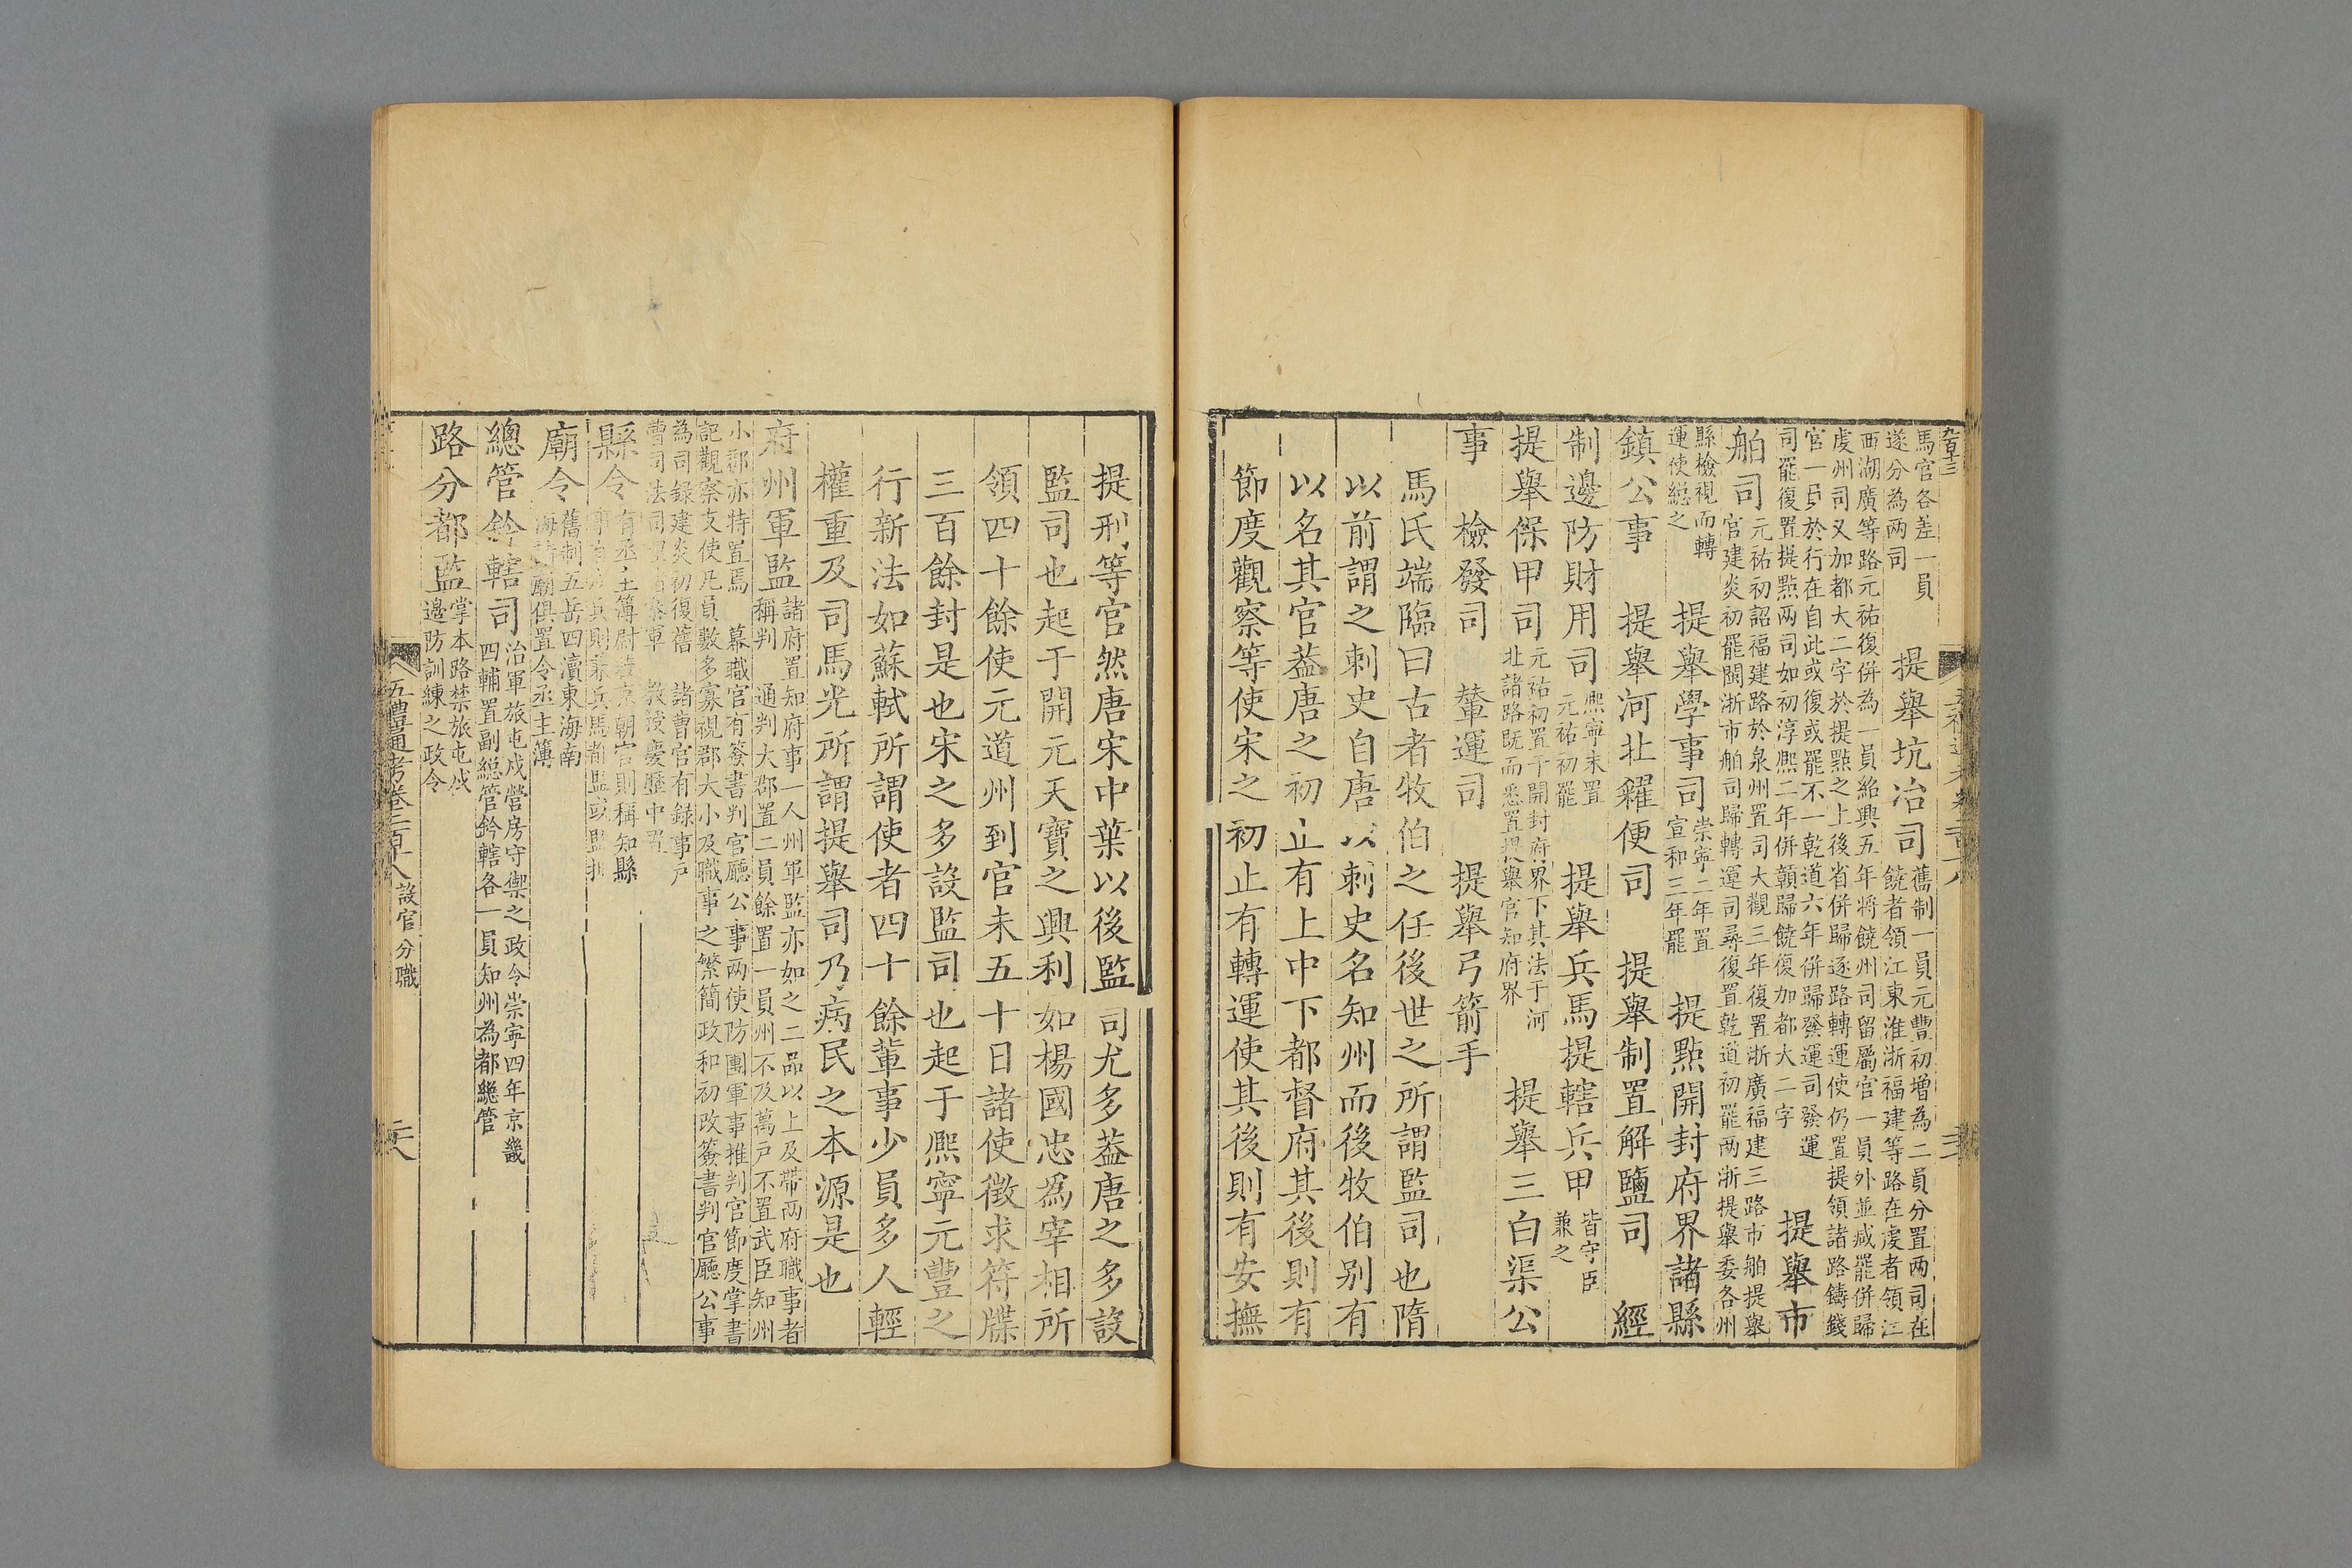 馬官各差一員
遂分為两司
提舉坑冶司
舊制一員元豐初增為二員分置两司在
饒者領江東淮浙福建等路在虔者領江
西湖廣等路元祐復併為一員紹興五年將饒州司留屬官一員外並减罷併歸
虔州司又加都大二字於提㸃之上後省併歸逐路轉運使仍置提領諸路鑄錢
官一員於行在自此或復或罷不一乾道六年併歸發運司發運
司罷復置提㸃两司如初淳熙二年併贛歸饒復加都大二字
提舉市
舶司
元祐初詔福建路於泉州置司大觀三年復置浙廣福建三路市舶提舉
官建炎初罷閩浙市舶司歸轉運司尋復置乾道初罷两浙提舉委各州
縣檢視而轉
運使総之
提舉學事司
崇寧二年置
宣和三年罷
提點開封府界諸縣
鎮公事 提舉河北糴便司 提舉制置解鹽司 經
制邊防財用司
熙寧末置
元祐初罷
提舉兵馬提轄兵甲
皆守臣
兼之
提舉保甲司
元祐初置于開封府界下其法于河
北諸路既而悉置提舉官知府界
提舉三白渠公
事 檢發司 輦運司 提舉弓箭手
馬氏端臨曰古者牧伯之任後世之所謂監司也隋
以前謂之刺史自唐以刺史名知州而後牧伯别有
以名其官葢唐之初止有上中下都督府其後則有
節度觀察等使宋之初止有轉運使其後則有安撫
提刑等官然唐宋中葉以後監司尤多葢唐之多設
監司也起于開元天寶之興利如楊國忠為宰相所
領四十餘使元道州到官未五十日諸使徴求符牒
三百餘封是也宋之多設監司也起于熙寧元豐之
行新法如蘇軾所謂使者四十餘軰事少員多人輕
權重及司馬光所謂提舉司乃病民之本源是也
府州軍監
諸府置知府事一人州軍監亦如之二品以上及帶两府職事者
稱判 通判大郡置二員餘置一員州不及萬戸不置武臣知州
小郡亦特置焉 幕職官有簽書判官廳公事两使防團軍事推判官節度掌書
記觀察支使凡員數多寡視郡大小及職事之繁簡政和初改簽書判官廳公事
為司録建炎初復舊 諸曹官有録事戸
曹司法司理司叅軍 教授慶歷中置
縣令
有丞主簿尉京朝官則稱知縣
事有兵則兼兵馬都監或監押
廟令
舊制五岳四瀆東海南
海諸廟俱置令丞主簿
總管鈐轄司
治軍旅屯戍營房守禦之政令崇寧四年京畿
四輔置副総管鈐轄各一員知州為都緫管
路分都監
掌本路禁旅屯戍
邊防訓練之政令
五禮通考卷二百十八 設官分職